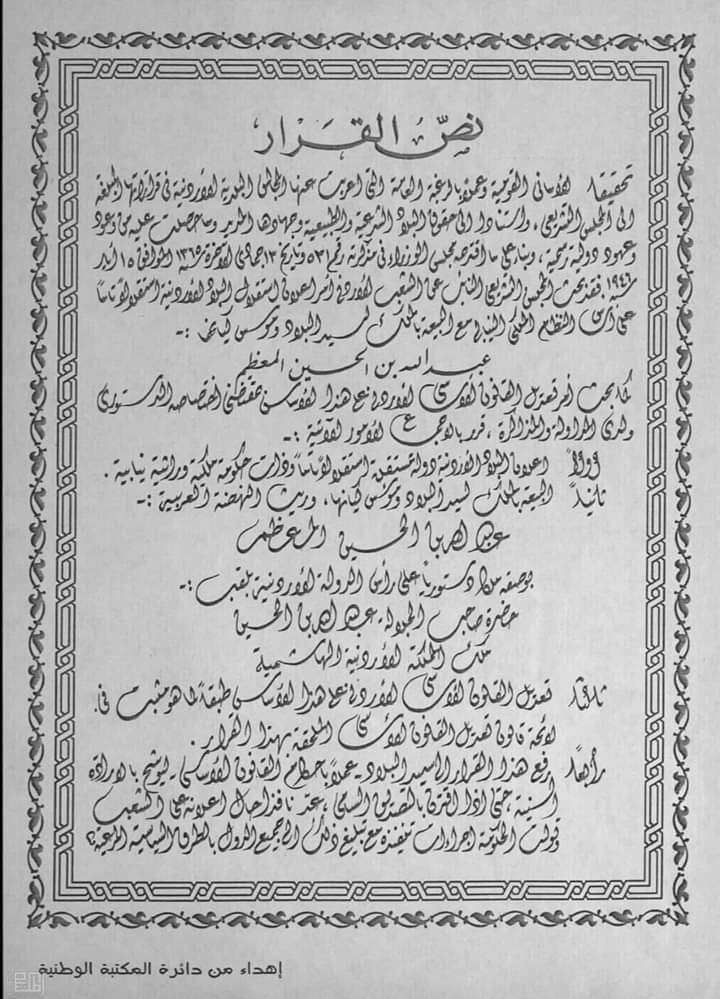 نصّ القرار
تحقيقا للأماني القومية وعملا بالرغبة العامة التي اعربت عنها المجالس البلدية الأردنية في قراراتها المبلغة
الى المجلس التشريعي، واستنادا الى حقوق البلاد الشرعية والطبيعية وجهادها المديد وما حصلت عليه من وعود
وعهود دولية رسمية، وبناء على ما اقترحه مجلس الوزراء في مذكرته رقم ٥٢١ وتاريخ ١٣ جمادى الآخرة ١٣٦٥ الموافق ١٥ أيار
سنة ١٩٤٦. فقد بحث المجلس التشريعي النائب عن الشعب الأردني أمر اعلان استقلال البلاد الأردنية استقلالا تاماً
على أساس النظام الملكي النيابي مع البيعة بالملك لسيد البلاد ومؤسس كيانها :-
عبد الله بن الحسين المعظم
كما بحث أمر تعديل القانون الأساسي الأردني على هذا الأساس بمقتضى اختصاصه الدستوري
ولدى المداولة والمذاكرة، قرر بالإجماع الأمور الآتية :-
اولاً اعلان البلاد الأردنية دولة مستقلة استقلالا تاماً وذات حكومة ملكية وراثية نيابية.
ثانياً البيعة بالملك لسيد البلاد ومؤسس كيانها، وريث النهضة العربية :-
عبد الله بن الحسين المعظم
بوصفه ملكا دستورياً على رأس الدولة الأردنية بلقب :-
حضرة صاحب الجلالة عبد الله بن الحسين
ملك المملكة الأردنية الهاشمية
ثالثاً تعديل القانون الأساسي الأردني على هذا الأساس طبقاً لما هو مثبت في
لائحة قانون تعديل القانون الأساسي الملحقة بهذا القرار.
رابعاً رفع هذا القرار الى سيد البلاد - عملاً بأحكام القانون الأساسي - ليوشح بالارادة
السنية حتى اذا اقترن بالتصديق السامي، عد نافذا حال اعلانه على الشعب
وتولت الحكومة اجراءات تنفيذه مع تبليغ ذلك الى جميع الدول بالطرق السياسية المرعية
إهداء من دائرة المكتبة الوطنية